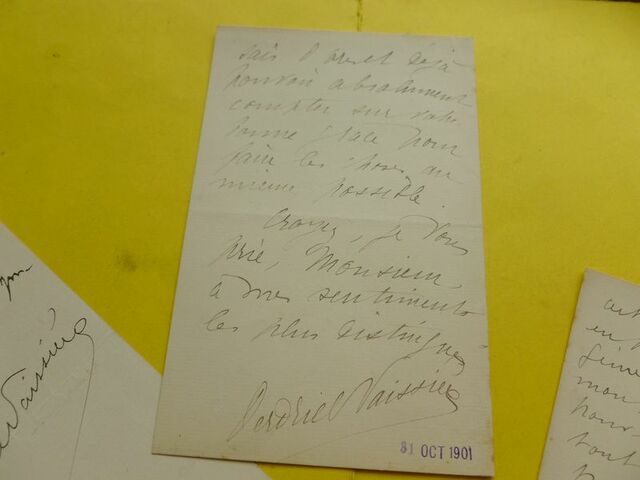 sais d'ores et déjà
pouvoir absolument
compter sur votre
bonne grâce pour
faire les choses au
mieux possible.
Croyez, je vous
prie, Monsieur,
à mes sentiments
les plus distingués
Perdriel Vaissière
31 OCT 1901
Vaissière
en
mon
pour
tout